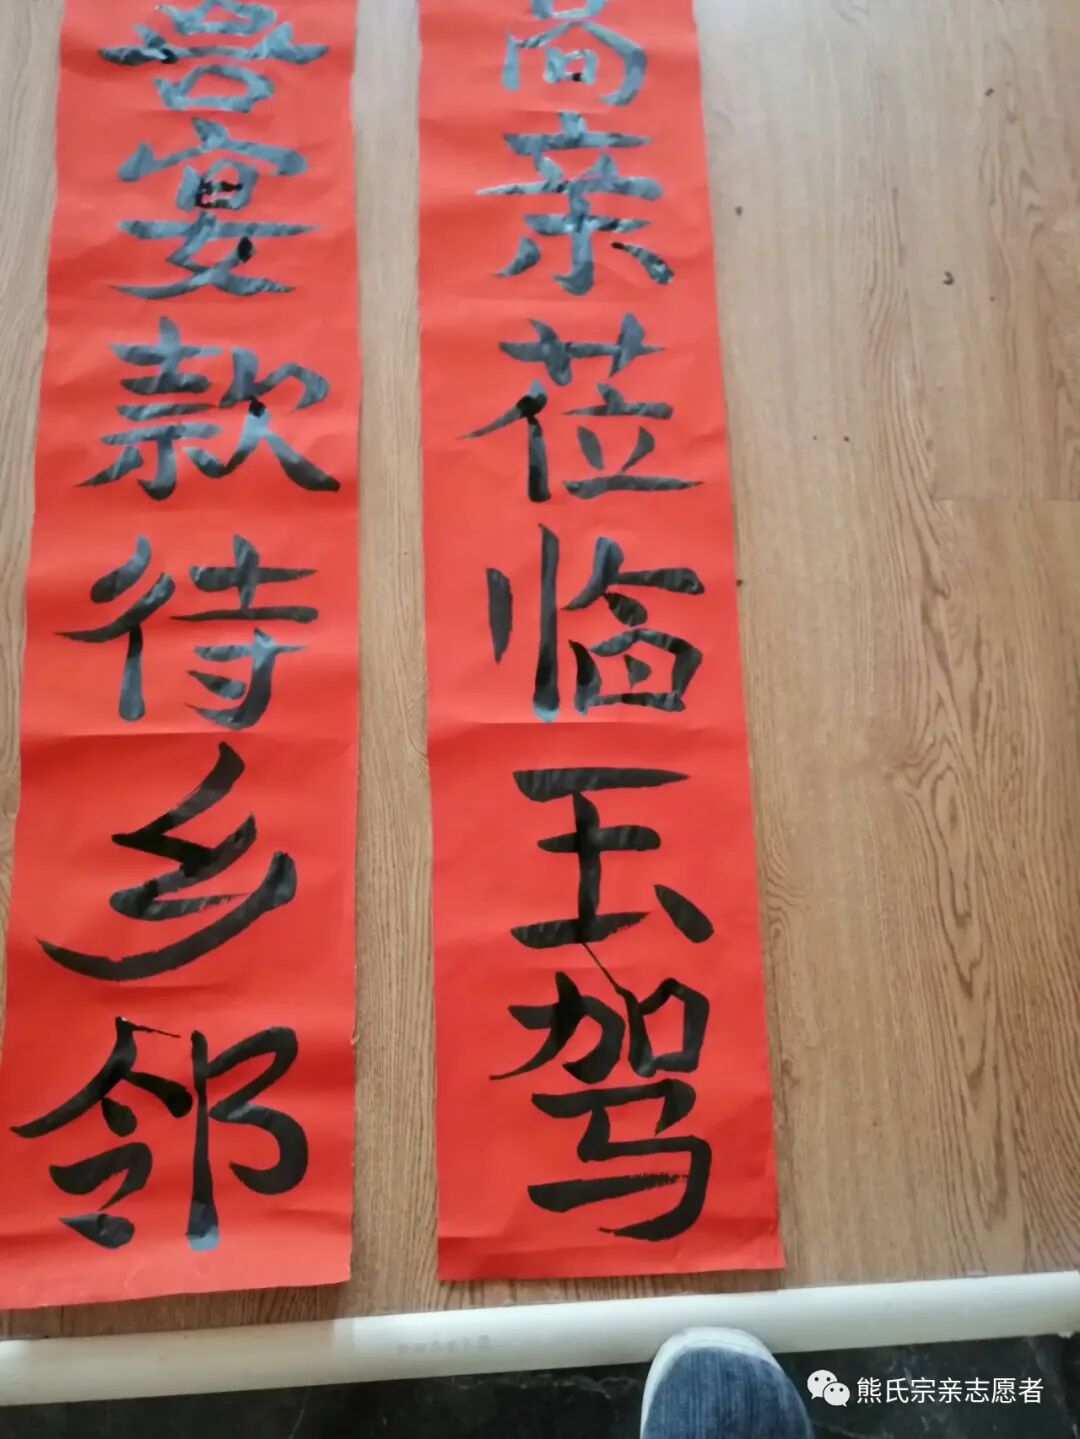 高亲莅临玉驾
喜宴款待乡邻
熊氏宗亲志愿者